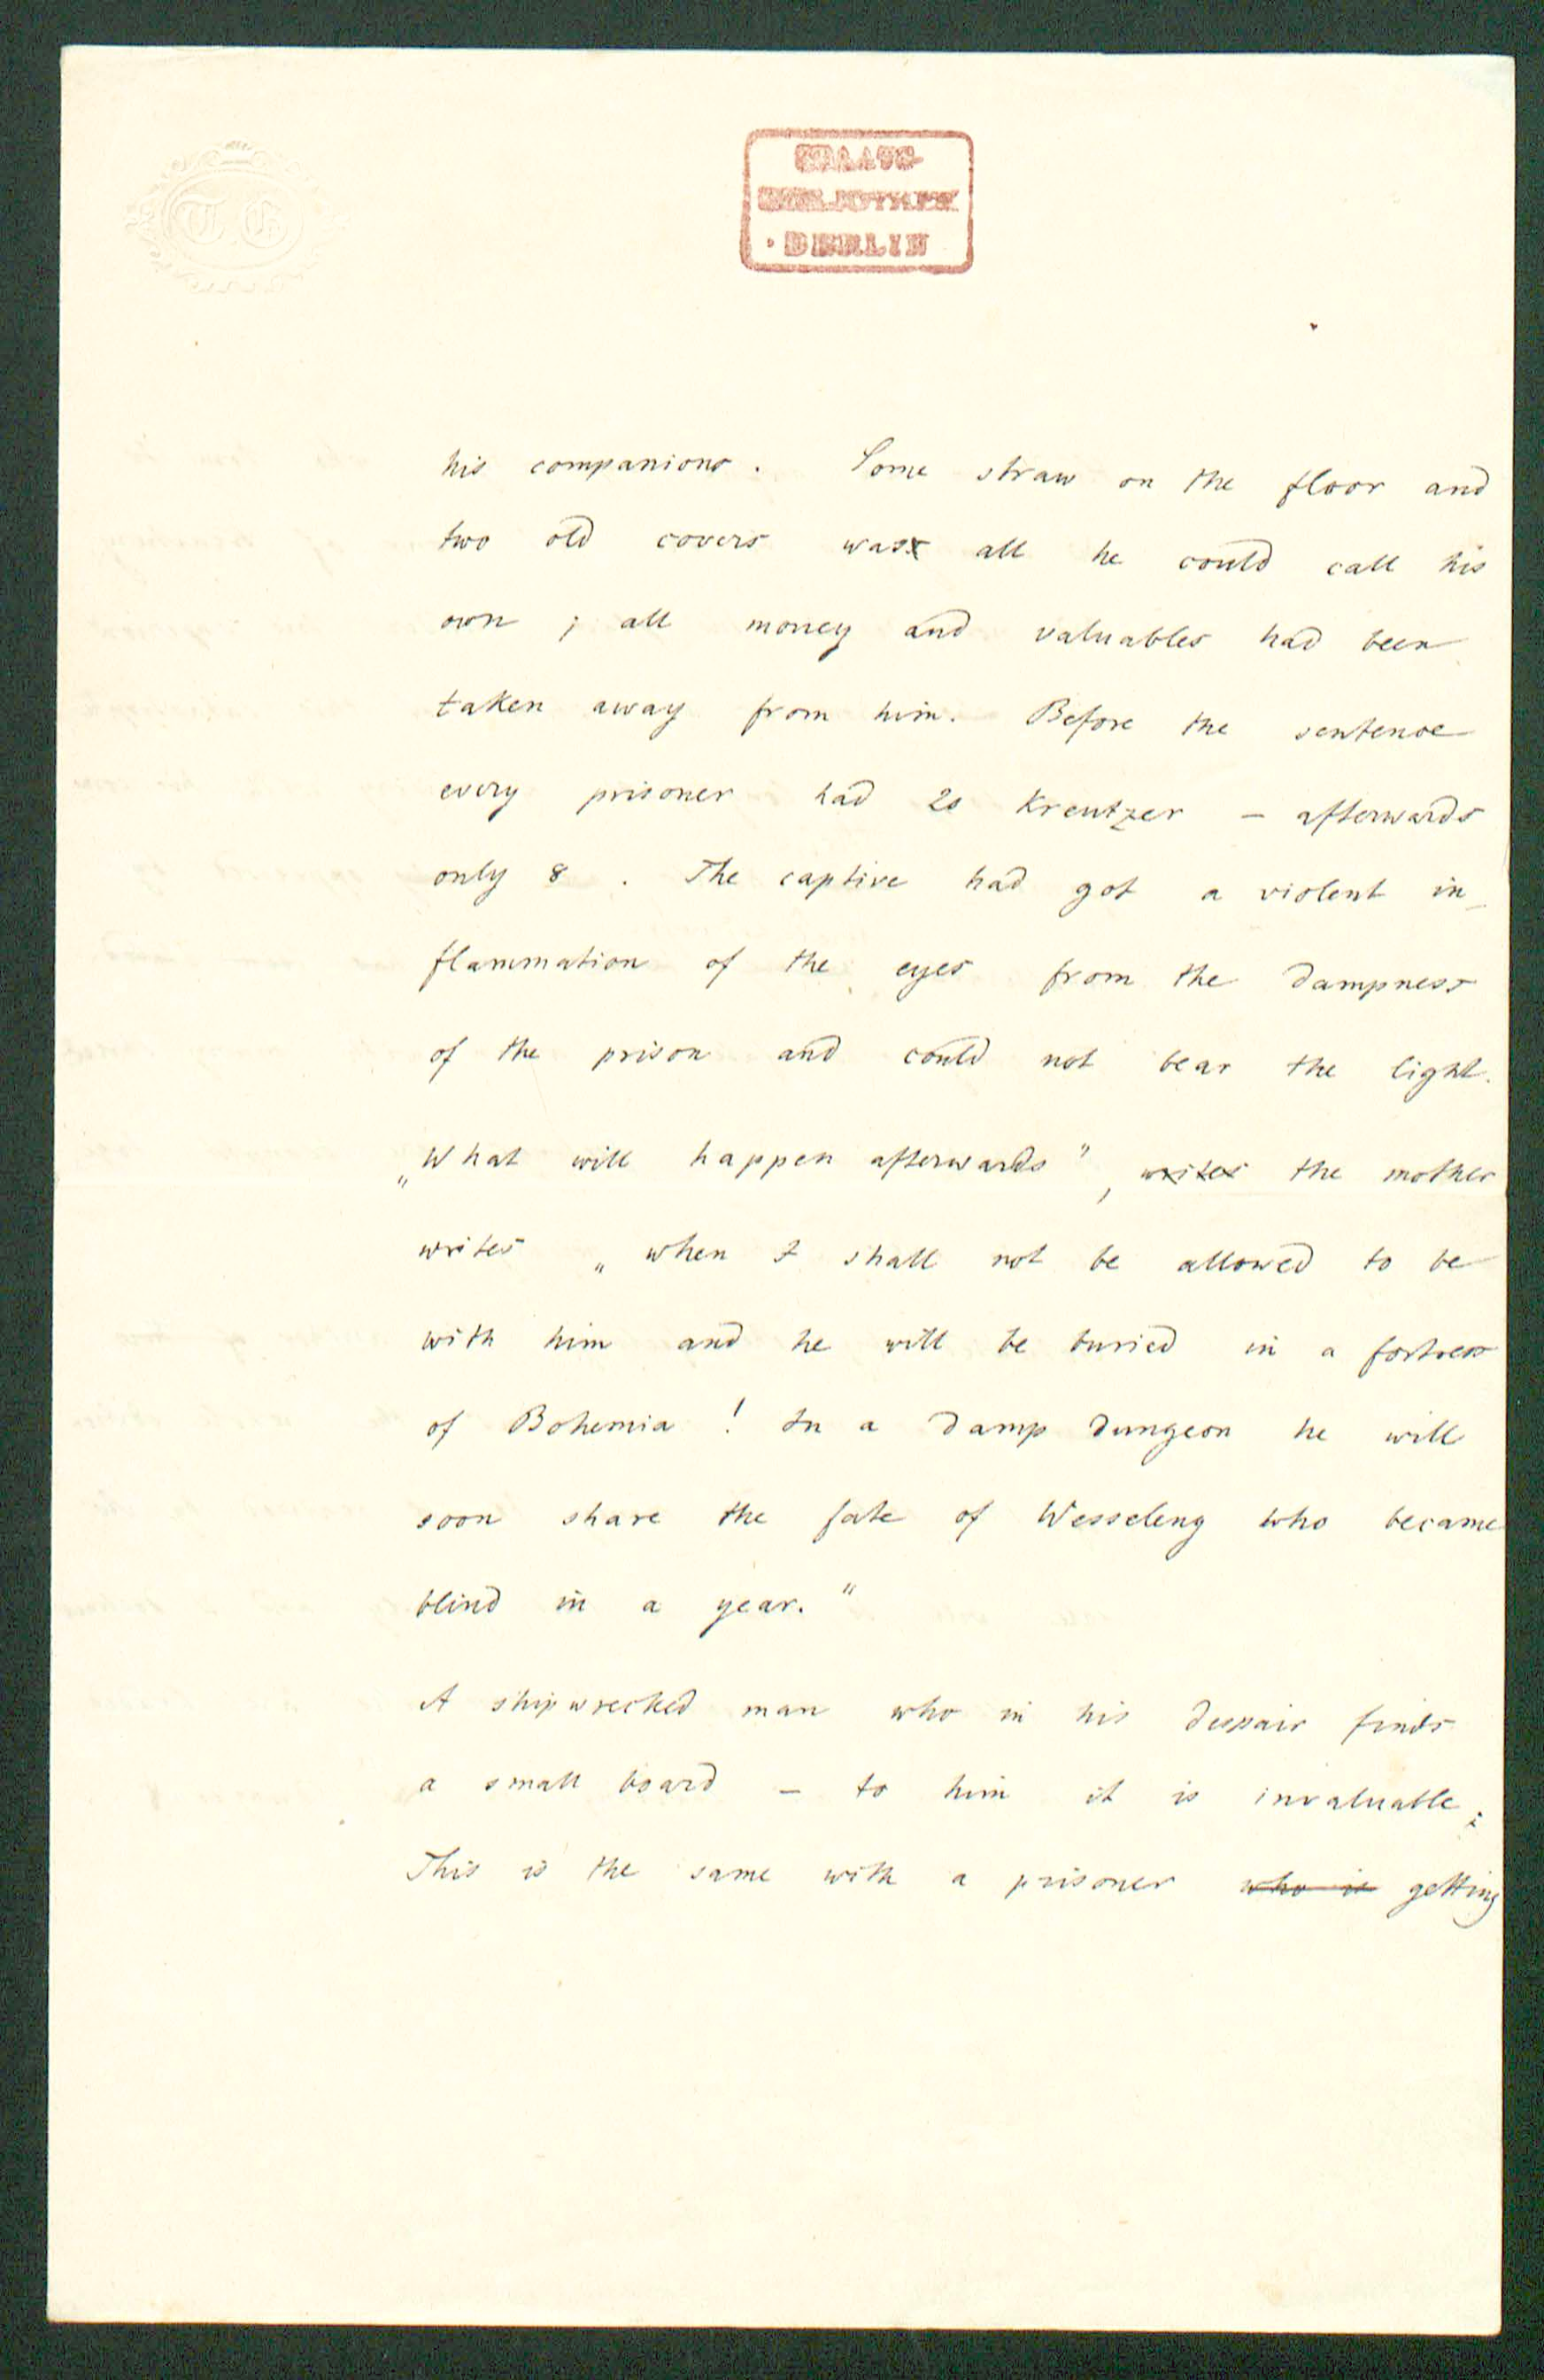 T. G.
STAATS-
BIBLIOTHEK
• BERLIN
his companions. Some straw on the floor and
two old covers was all he could call his
own ; all money and valuables had been
taken away from him. Before the sentence
every prisoner had 20 Kreutzer – afterwards
only 8 . The captive had got a violent in_
flammation of the eyes from the dampness
of the prison and could not bear the light.
„What will happen afterwards”, writes the mother
writes „when I shall not be allowed to be
with him and he will be buried in a fortress
of Bohemia ! In a damp dungeon he will
soon share the fate of Wesseleny who became
blind in a year.”
A shipwrecked man who in his despair finds
a small board – to him it is invaluable;
This is the same with a prisoner who is getting